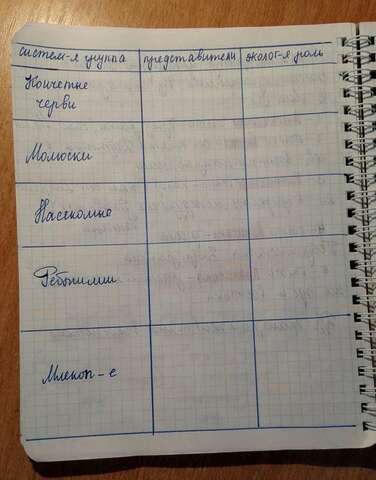 систем-я группа представители эколог-я роль
Кольчатые
черви
Молюски
Насекомые
Рептилии
Млекоп-е